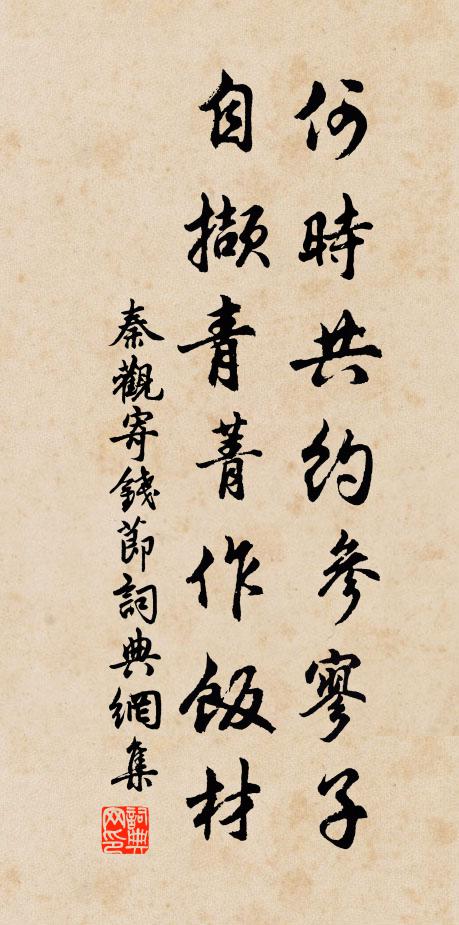 何時共約參寥子
自擷青菁作飯材
秦觀寄錢節詞典網集
詞典网印